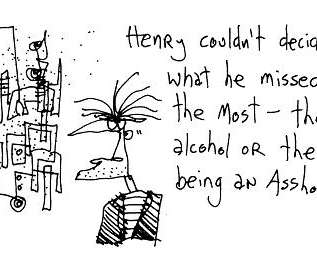 Henry couldn't decid
what he missed
the most – th
alcohol or the
being an Assho